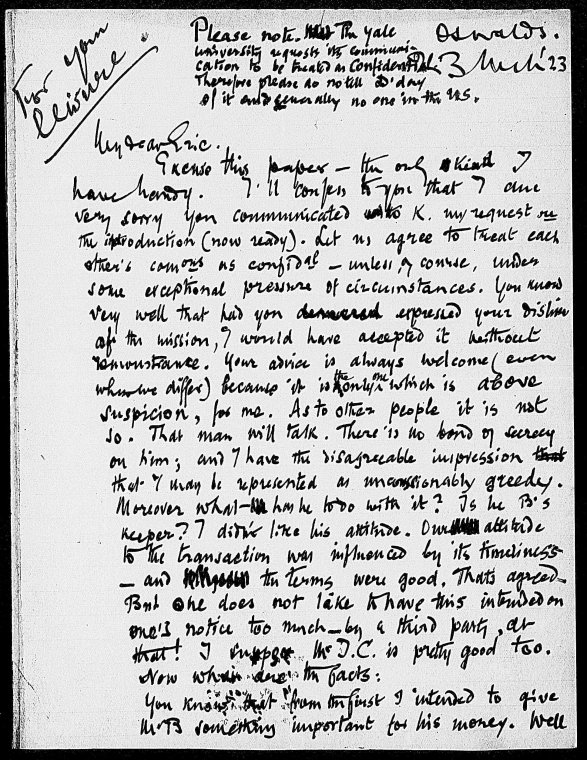 For your
leisure
Please note. The Yale
University requests its communi-
cation to be treated as Confidential
Therefore please do not tell D'day
of it and generally no one in the U.S.
Oswalds.
3 Mch '23
My dear Eric.
Excuse this paper – the only kind I
have handy. I'll confess to you that I am
very sorry you communicated to K. my request re
the introduction (now ready). Let us agree to treat each
other's comons as confidal – unless, of course, under
some exceptional pressure of circumstances. You know
very well that had you expressed your dislike
of the mission, I would have accepted it without
remonstrance. Your advice is always welcome (even
when we differ) because it is the only one which is above
suspicion, for me. As to other people it is not
so. That man will talk. There is no bond of secrecy
on him; and I have the disagreeable impression that
that I may be represented as unconscionably greedy.
Moreover what – has he to do with it? Is he B's
keeper? I didn't like his attitude. Our attitude
to the transaction was influenced by its timeliness
– and the terms were good. That's agreed –
But one does not like to have this intruded on
one's notice too much – by a third party, at
that! I suppose Mr J.C. is pretty good too.
Now what are the facts:
You know that from the first I intended to give
Mr B something important for his money. Well